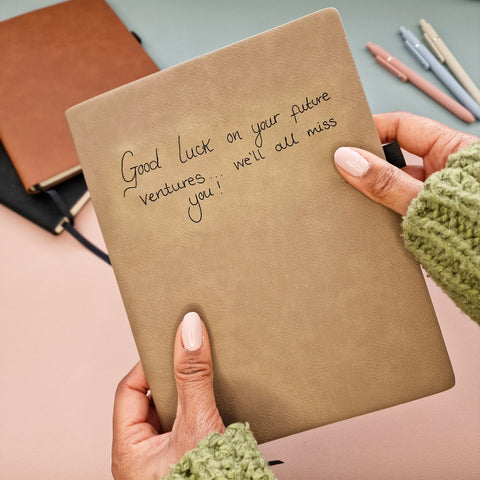 Good luck on your future
ventures... we'll all miss
you!